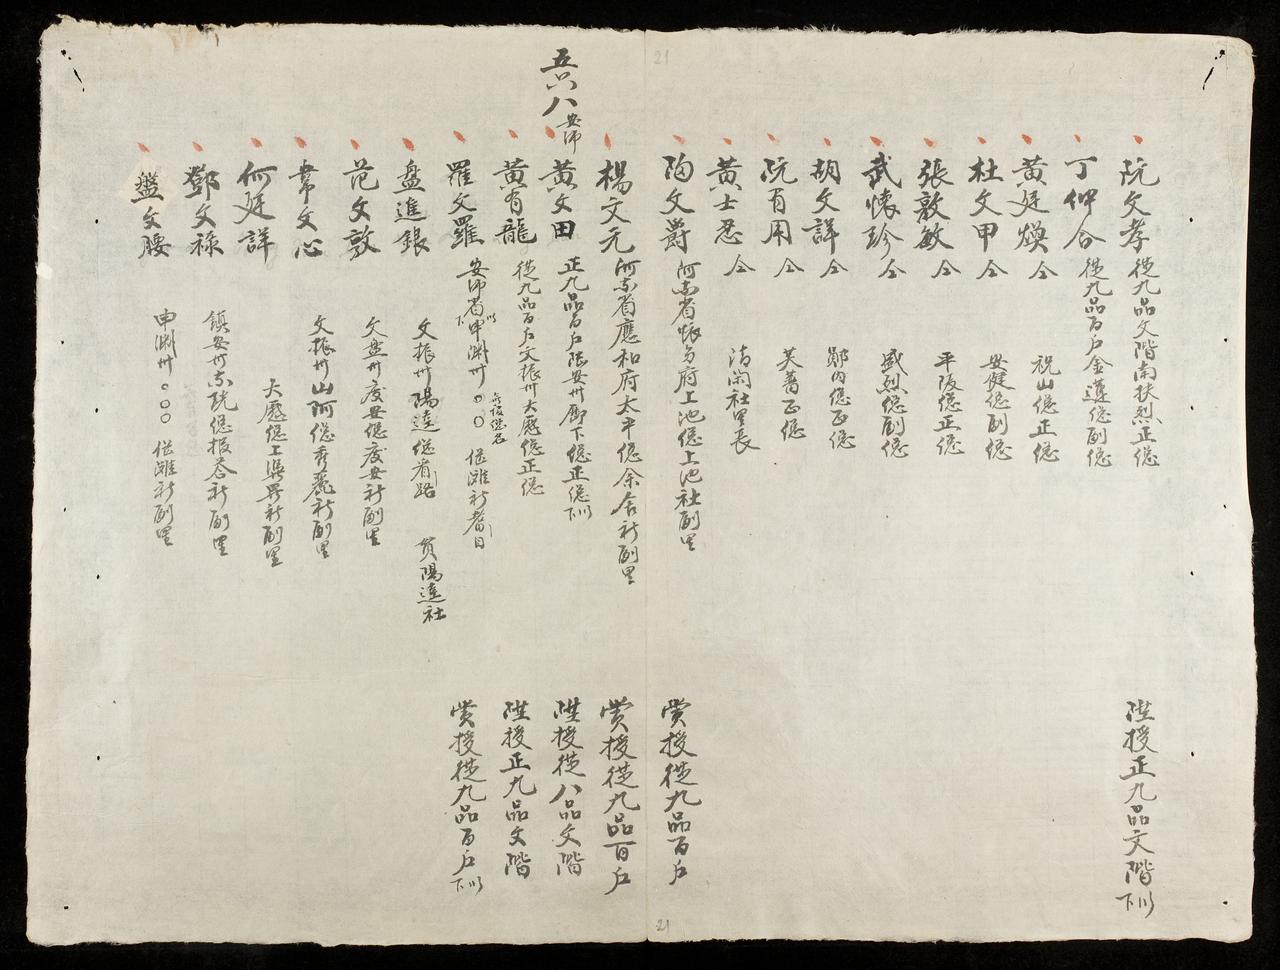 阮文孝 從九品文階南扶烈正總 陞授正九品文階 下㕥
丁仲合 從九品百戶金遵總副總
黃廷煥 仝 祝山總正總
杜文甲 仝 安健總副總
張敦敏 仝 平陵總正總
武懷珍 仝 盛烈總副總
胡文詳 仝 總正總
阮有用 仝 芙蕾正總
黃士忍 仝 清閑社里長
陶文爵 河南省 府上池總上池社副里 賞授從九品百戶
21
21
楊文元 河東省應和府太平總余舍社副里 賞授從九品百戶
五六八 安沛
黃文田 正九品百戶陸安州廊下總正總 下㕥 陞授從八品文階
黃有龍 從九品百戶文振州大歷總正總 陞授正九品文階
羅文羅 安沛省 下㕥 申淵州○○ 總 社耆目 賞授從九品百戶 下㕥
盤進銀 文振州陽逵總 路 貫陽逵社
范文敦 文盤州度安總度安社副里
韋文心 文振州山阿總秀麗社副里
何廷詳 大歷總上 社副里
鄧文祿 鎮安州東 總 社副里
盤文腰 申淵州○○○ 社副里